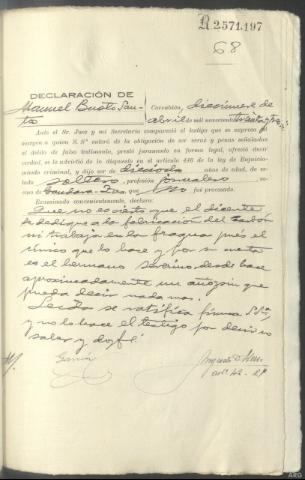 R 2571.197
68
DECLARACIÓN DE
Manuel Busto San-
to
Corvetión, diecinueve de
abril de mil novecientos treinta y
Ante el Sr. Juez y mi Secretario compareció el testigo que se expresa al
margen a quien S. Sª enteró de la obligación de ser veraz y penas señaladas
al delito de falso testimonio, prestó juramento en forma legal, ofreció decir
verdad, se le advirtió de lo dispuesto en el artículo 446 de la ley de Enjuicia-
miento criminal, y dijo ser de dieciocho años de edad, de es-
tado soltero, profesión jornalero ve-
cino de que no fué procesado.
Examinado convenientemente, declara:
Que no es cierto que el dicente
se dedique a la fabricación del carbón
ni trabaja en la fragua pués el
único que lo hace y por su cuenta
es el hermano Severino desde hace
aproximadamente un año sin que
pueda decir nada mas.
Leída se ratifica firma S Sª
y no lo hace el testigo por decir no
saber y doy fé.
García